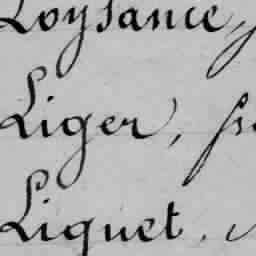 Loysance,
Liger,
Liquet,